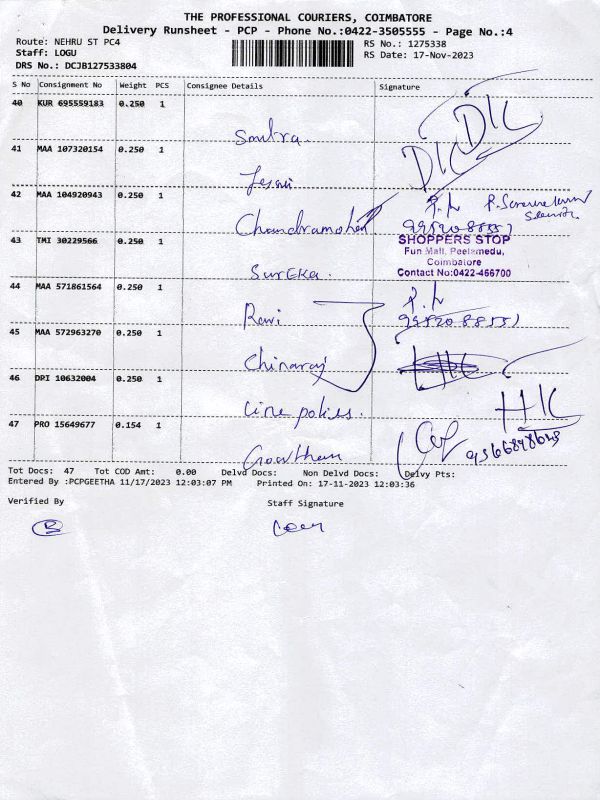 THE PROFESSIONAL COURIERS, COIMBATORE
Delivery Runsheet - PCP - Phone No.:0422-3505555 - Page No.:4
Route: NEHRU ST PC4 RS No.: 1275338
Staff: LOGU RS Date: 17-Nov-2023
DRS No.: DCJB127533804
S No Consignment No Weight PCS Consignee Details Signature
40 KUR 695559183 0.250 1
DIC DIC
41 MAA 107320154 0.250 1
42 MAA 104920943 0.250 1
Chandramohan
43 TMI 30229566 0.250 1
SHOPPERS STOP
Fun Mall, Peelamedu,
Coimbatore
Contact No:0422-466700
SurEKa.
44 MAA 571861564 0.250 1
Ravi
45 MAA 572963270 0.250 1
Chinaraj
46 DPI 10632004 0.250 1
HIC
Cine polis.
47 PRO 15649677 0.154 1
Gowtham
Tot Docs: 47 Tot COD Amt: 0.00 Delvd Docs: Non Delvd Docs: Delvy Pts:
Entered By :PCPGEETHA 11/17/2023 12:03:07 PM Printed On: 17-11-2023 12:03:36
Verified By Staff Signature
B